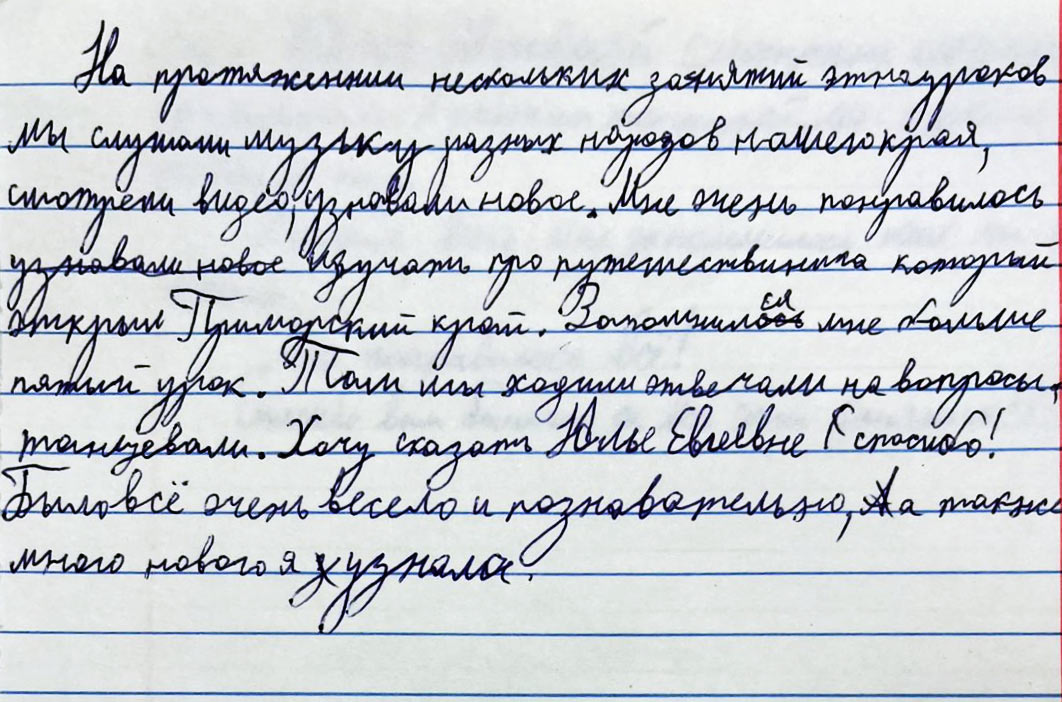 На протяжении нескольких занятий этноуроков
мы слушали музыку разных народов нашего края,
смотрели видео, узнавали новое. Мне очень понравилось
узнавали новое изучать про путешественника который
открыл Приморский край. Запомнился мне больше
пятый урок. Там мы ходили отвечали на вопросы,
танцевали. Хочу сказать Юлье Евгеевне спасибо!
Было всё очень весело и познавательно, а также
много нового я узнала.